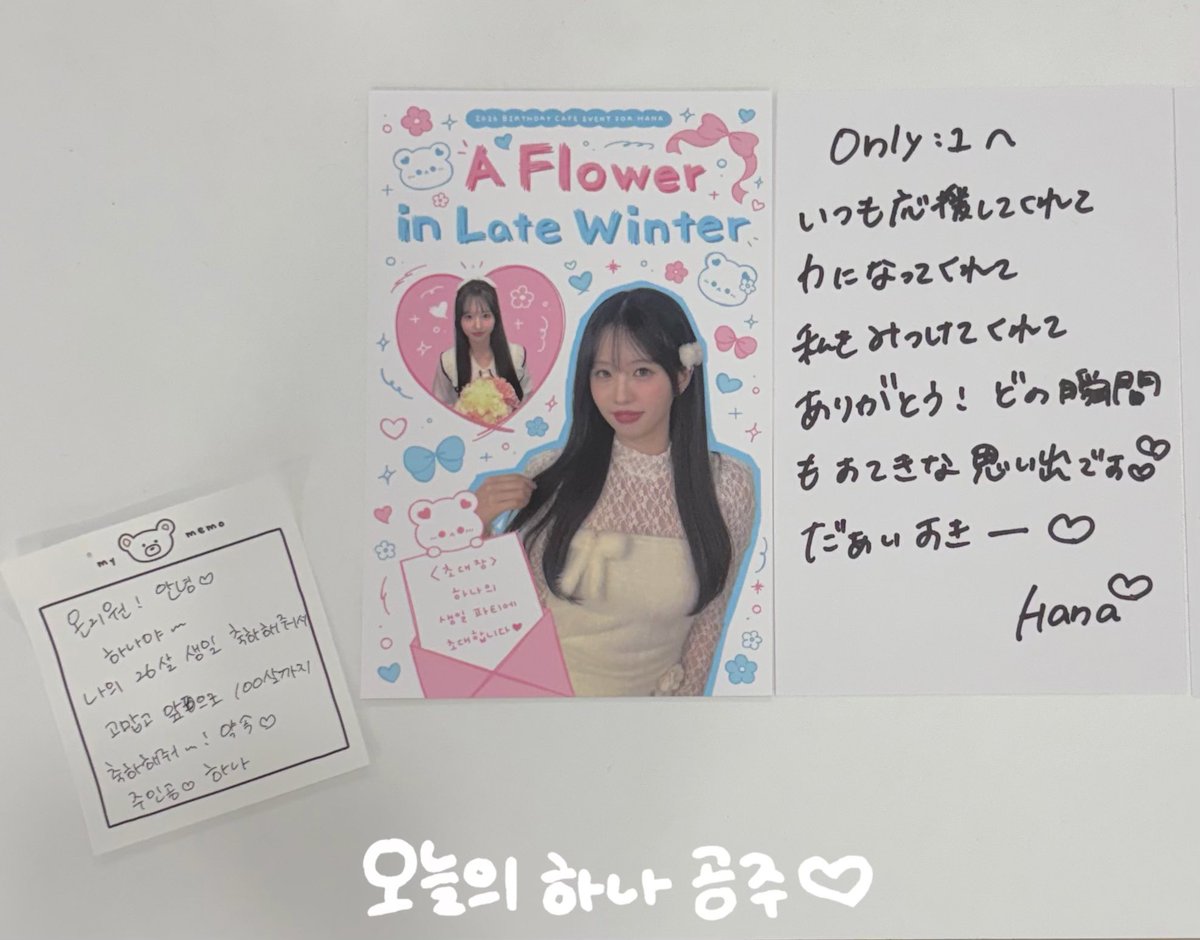 2026 BIRTHDAY CAFE EVENT FOR HANA
A Flower
in Late Winter
<초대장>
하나의
생일 파티에
초대합니다♥
Only:1へ
いつも応援してくれて
力になってくれて
私をみつけてくれて
ありがとう! どの瞬間
もすてきな思い出です♡♡
だぁいすきー♡
Hana♡
my memo
온리원! 안녕♡
하나야~
나의 26살 생일 축하해줘서
고맙고 앞으로 100살까지
축하해줘~! 약속♡
주인공♡ 하나
오늘의 하나 공주♡